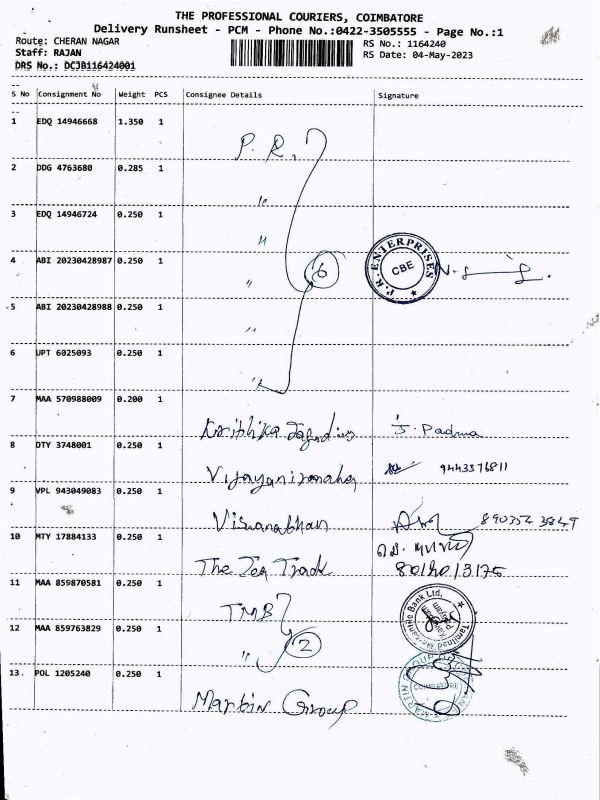 THE PROFESSIONAL COURIERS, COIMBATORE
Delivery Runsheet - PCM - Phone No.:0422-3505555 - Page No.:1
Route: CHERAN NAGAR
RS No.: 1164240
Staff: RAJAN
RS Date: 04-May-2023
DRS No.: DCJB116424001
S No Consignment No Weight PCS Consignee Details Signature
1 EDQ 14946668 1.350 1
P. R.
2 DDG 4763680 0.285 1
"
3 EDQ 14946724 0.250 1
"
P.R. ENTERPRISES CBE
4 ABI 20230428987 0.250 1
" 6
5 ABI 20230428988 0.250 1
"
6 UPT 6025093 0.250 1
"
7 MAA 570988009 0.200 1
J. Padma
8 DTY 3748001 0.250 1
9443376811
9 VPL 943049083 0.250 1
Viswanabhan
10 MTY 17884133 0.250 1
The Tea Track
11 MAA 859870581 0.250 1
TMB
Tamilnad Mercantile Bank Ltd.
12 MAA 859763829 0.250 1
" 2
13. POL 1205240 0.250 1
Martin Group
MARTIN GROUP COIMBATORE